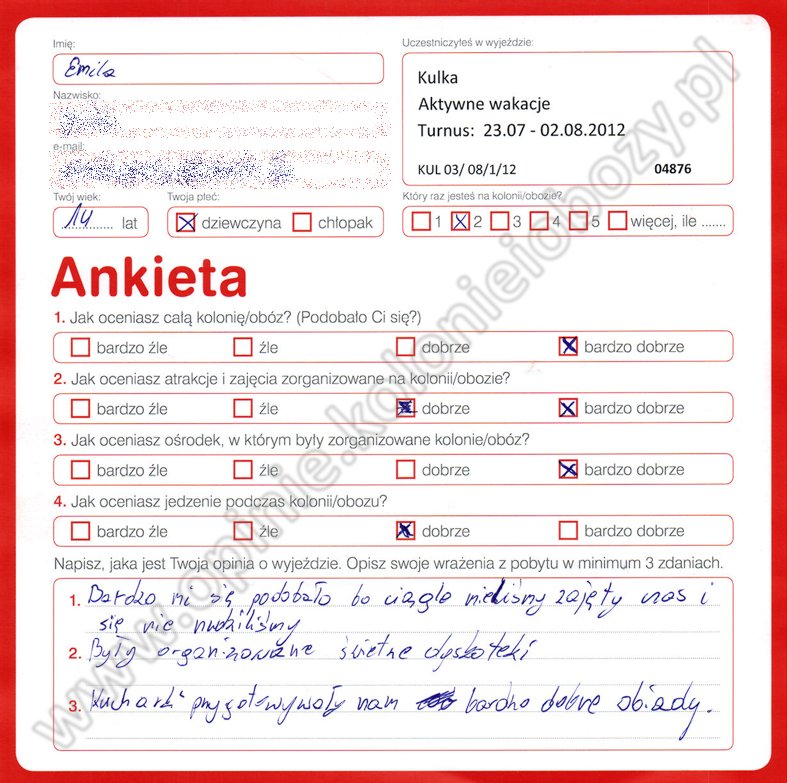 Imię:
Emila
Nazwisko:
e-mail:
Twój wiek:
14 lat
Twoja płeć:
dziewczyna chłopak
Uczestniczyłeś w wyjeździe:
Kulka
Aktywne wakacje
Turnus: 23.07 - 02.08.2012
KUL 03/ 08/1/12 04876
Który raz jesteś na kolonii/obozie?
1 2 3 4 5 więcej, ile .......
Ankieta
1. Jak oceniasz całą kolonię/obóz? (Podobało Ci się?)
bardzo źle źle dobrze bardzo dobrze
2. Jak oceniasz atrakcje i zajęcia zorganizowane na kolonii/obozie?
bardzo źle źle dobrze bardzo dobrze
3. Jak oceniasz ośrodek, w którym były zorganizowane kolonie/obóz?
bardzo źle źle dobrze bardzo dobrze
4. Jak oceniasz jedzenie podczas kolonii/obozu?
bardzo źle źle dobrze bardzo dobrze
Napisz, jaka jest Twoja opinia o wyjeździe. Opisz swoje wrażenia z pobytu w minimum 3 zdaniach.
1. Bardzo mi się podobało bo ciągle mieliśmy zajęty czas i
się nie nudziliśmy
2. Były organizowane świetne dyskoteki
3. Kucharki przygotowywały nam bardzo dobre obiady.
www.opinie.kolonieiobozy.pl